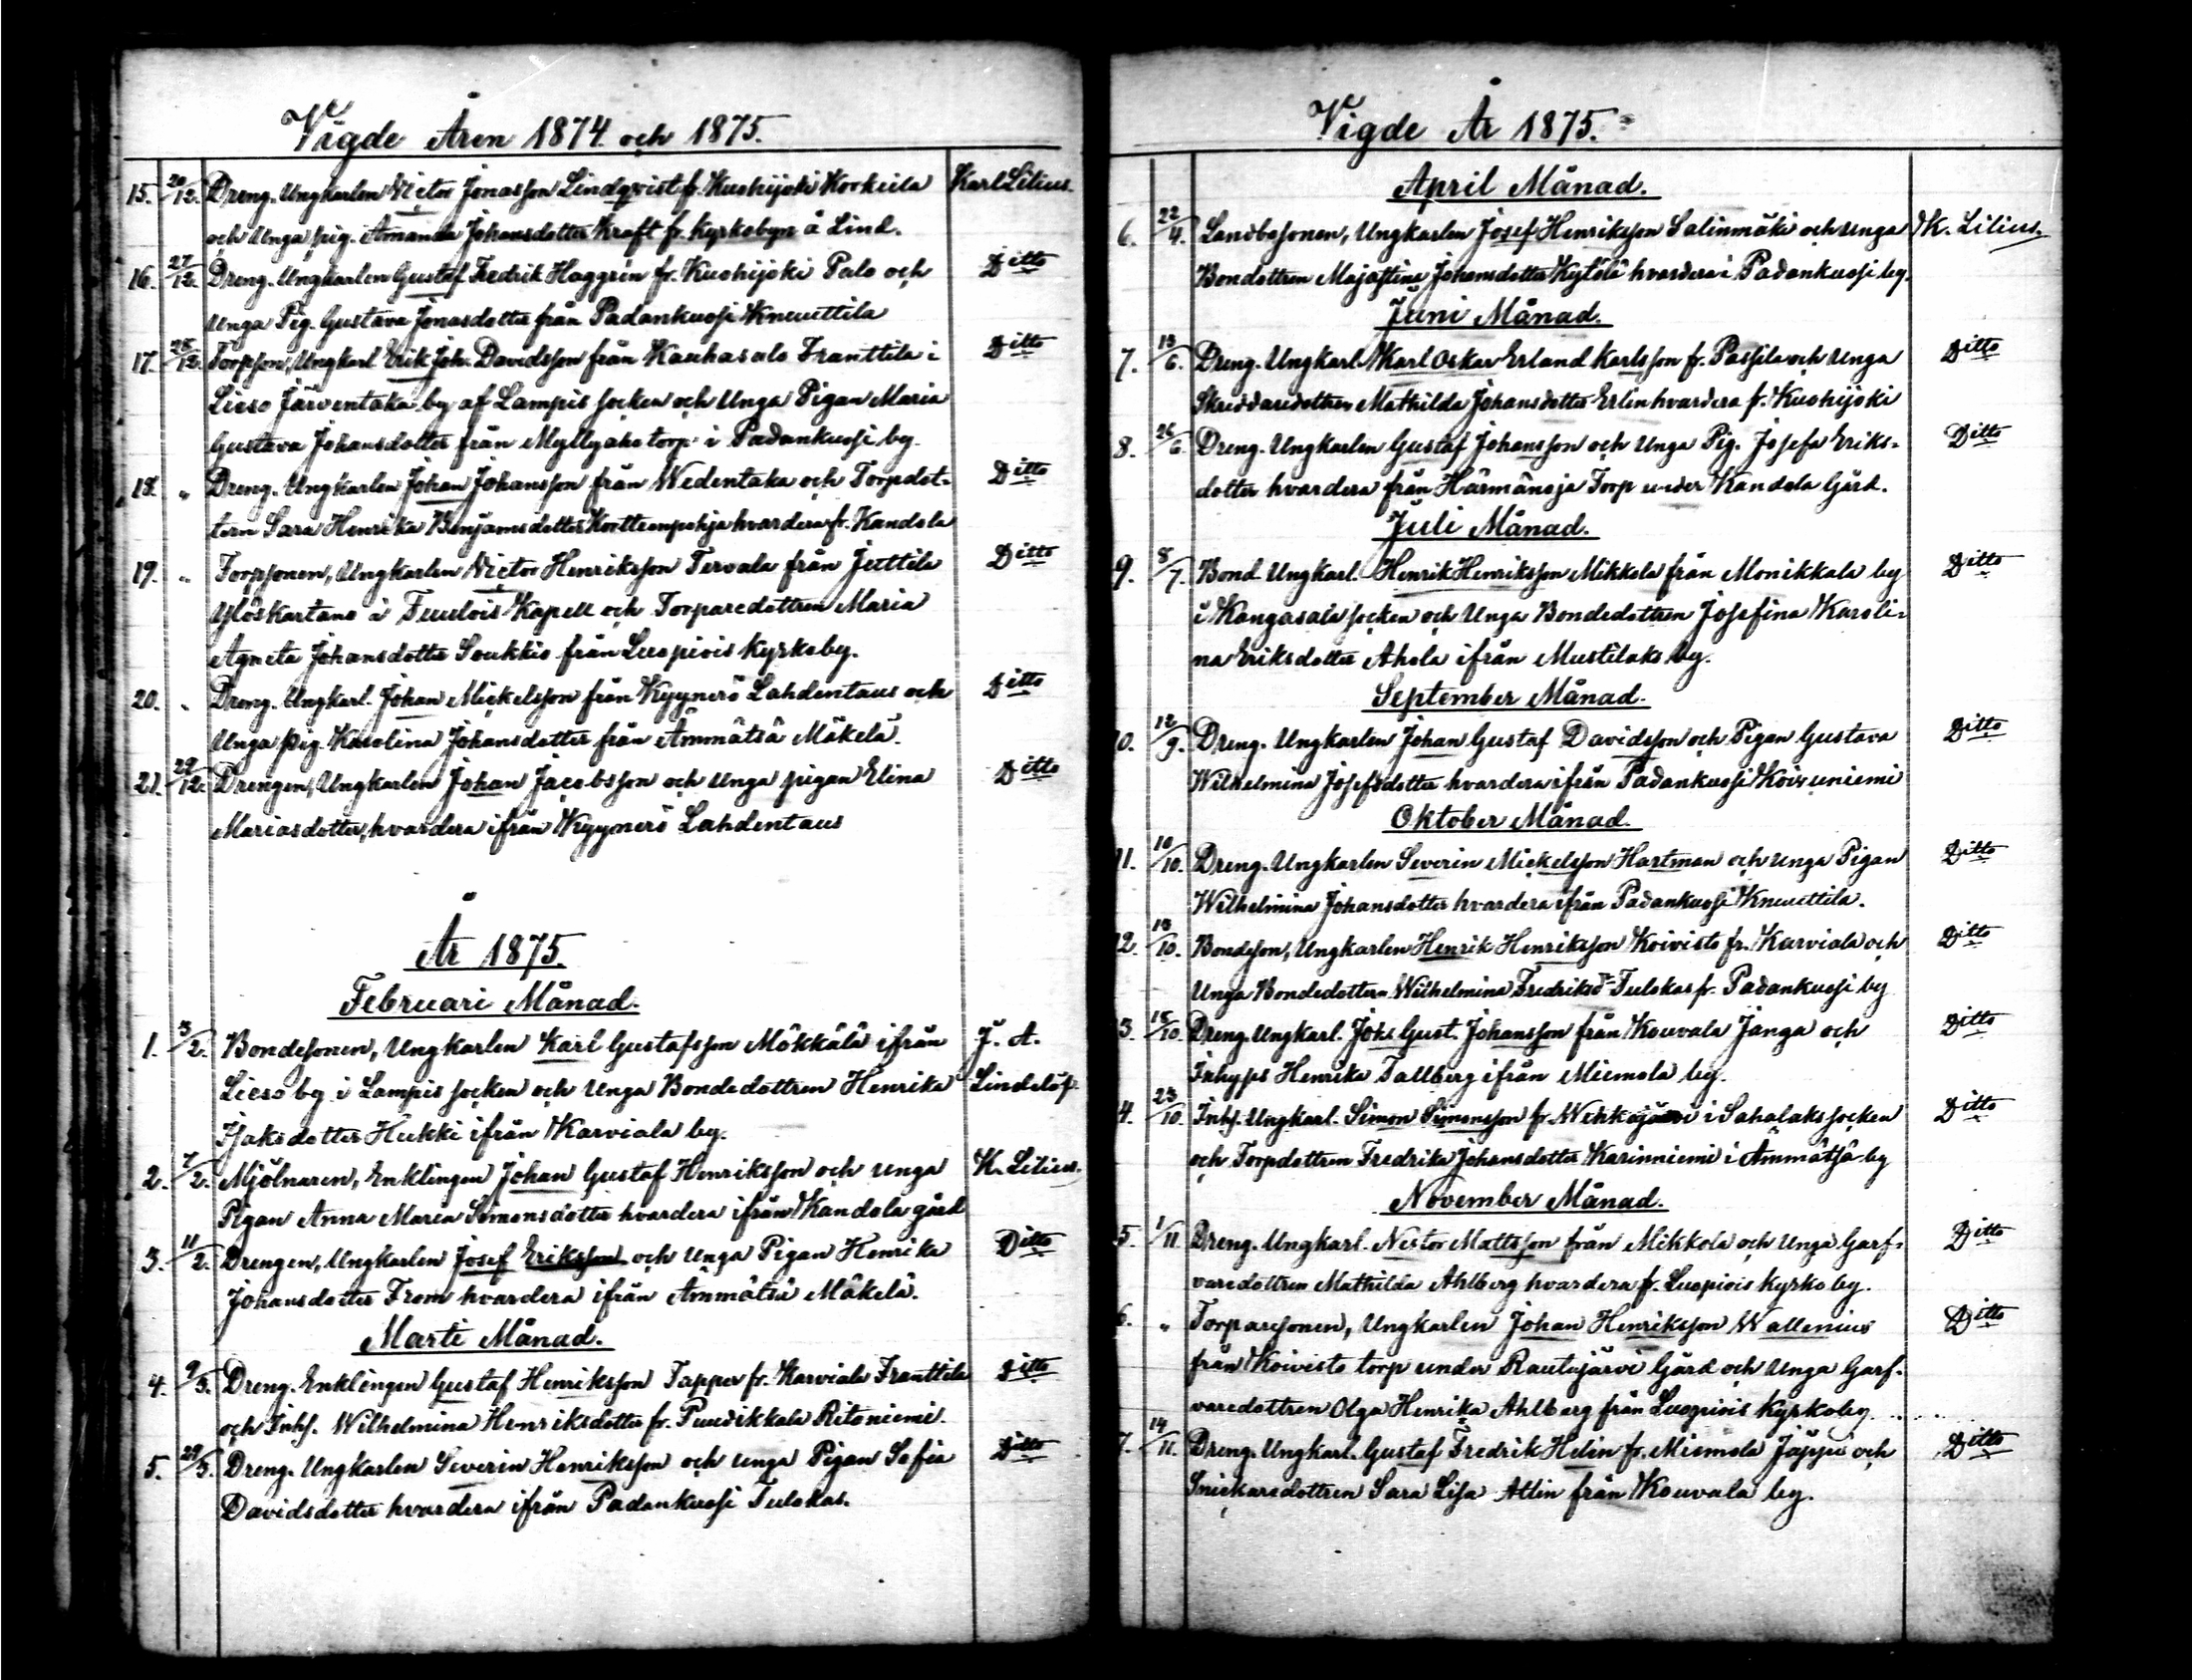 Vigde Åren 1874 och 1875.
15. 20/12. Dreng. Ungkarlen Victor Jonasson Lindqvist fr. Kuohijoki Korkiila Karl Lilius.
och Unga pig. Amanda Johansdotter Kraft fr. Kyrkobyn å Lind.
16. 27/12. Dreng. Ungkarlen Gustaf Fredrik Haggrén fr. Kuohijoki Palo och Ditto
Unga Pig. Gustava Jonasdotter från Padankuosi Knuuttila
17. 28/12. Torpson, Ungkarl Erik Joh. Davidsson från Kauhasalo Franttila i Ditto
Lieso Järventaka by af Lampis socken och Unga Pigan Maria
Gustava Johansdotter från Myllyaho torp i Padankuosi by.
18. " Dreng. Ungkarlen Johan Johansson från Wedentaka och Torpdot- Ditto
tern Sara Henrika Benjamsdotter Korttempohja hvardera fr. Kandola
19. " Torpsonen, Ungkarlen Victor Henriksson Tervala från Juttila Ditto
Ylöskartano i Tuulois Kapell och Torparedottren Maria
Agneta Johansdotter Soukkio från Luopiois Kyrkoby.
20. " Dreng. Ungkarl. Johan Mickelsson från Kyynerö Lahdentaus och Ditto
Unga pig. Karolina Johansdotter från Ämmätsä Mäkelä.
21. 29/12. Drengen, Ungkarlen Johan Jacobsson och Unga pigan Elina Ditto
Mariasdotter, hvardera ifrån Kyynerö Lahdentaus
År 1875.
Februari Månad.
1. 3/2. Bondesonen, Ungkarlen Karl Gustafsson Mökkälä ifrån J. A.
Lieso by i Lampis socken och Unga Bondedottren Henrika Lindelöf
Isaksdotter Hukki ifrån Karviala by.
2. 7/2. Mjölnaren, Enklingen Johan Gustaf Henriksson och Unga K. Lilius.
Pigan Anna Maria Simonsdotter hvardera ifrån Kandola gård
3. 11/2. Drengen, Ungkarlen Josef Eriksson och Unga Pigan Henrika Ditto
Johansdotter From hvardera ifrån Ämmätsä Mäkelä.
Marti Månad.
4. 9/3. Dreng. Enklingen Gustaf Henriksson Tapper fr. Karviala Franttila Ditto
och Inhs. Wilhelmina Henriksdotter fr. Puudikkala Ritoniemi.
5. 29/3. Dreng. Ungkarlen Severin Henriksson och Unga Pigan Sofia Ditto
Davidsdotter hvardera ifrån Padankuosi Tulokas.
Vigde År 1875.
April Månad.
6. 22/4. Landbosonen, Ungkarlen Josef Henriksson Salinmäki och Unga K. Lilius.
Bondottren Majastina Johansdotter Kytölä hvardera i Padankuosi by.
Juni Månad.
7. 13/6. Dreng. Ungkarl. Karl Oskar Erland Karlsson fr. Passila och Unga Ditto
Skreddaredottren Mathilda Johansdotter Erlin hvardera fr. Kuohijoki
8. 26/6. Dreng. Ungkarlen Gustaf Johansson och Unga Pig. Josefa Eriks- Ditto
dotter hvardera från Härmänoja Torp under Kandola Gård.
Juli Månad.
9. 8/7. Bond. Ungkarl. Henrik Henriksson Mikkola från Monikkala by Ditto
i Kangasala socken och Unga Bondedottren Josefina Karoli-
na Eriksdotter Ahola ifrån Mustilaks by.
September Månad.
0. 12/9. Dreng. Ungkarlen Johan Gustaf Davidsson och Pigan Gustava Ditto
Wilhelmina Josefsdotter hvardera ifrån Padankuosi Koivuniemi
Oktober Månad.
11. 10/10. Dreng. Ungkarlen Severin Mickelsson Hartman och Unga Pigan Ditto
Wilhelmina Johansdotter hvardera ifrån Padankuosi Knuuttila.
2. 15/10. Bondeson, Ungkarlen Henrik Henriksson Koivisto fr. Karviala och Ditto
Unga Bondedottern Wilhelmina Fredriksdr Tulokas fr. Padankuosi by
3. 15/10. Dreng. Ungkarl. Johs Gust. Johansson från Kouvala Janga och Ditto
Inhyps Henrika Tallberg ifrån Miemola by.
4. 23/10. Inhs. Ungkarl. Simon Simonsson fr. Wehkajärvi i Sahalaks socken Ditto
och Torpdottren Fredrika Johansdotter Karinniemi i Ämmätsä by
November Månad.
5. 1/11. Dreng. Ungkarl. Nestor Mattsson från Mikkola och Unga Garf- Ditto
varedottren Mathilda Ahlberg hvardera fr. Luopiois Kyrko by.
6. " Torparsonen, Ungkarlen Johan Henriksson Wallenius Ditto
från Koivisto torp under Rautajärvi Gård och Unga Garf-
varedottren Olga Henrika Ahlberg från Luopiois Kyrkoby.
7. 14/11. Dreng. Ungkarl. Gustaf Fredrik Helin fr. Miemola Jäppi och Ditto
Snickaredottren Sara Lisa Attin från Kouvala by.